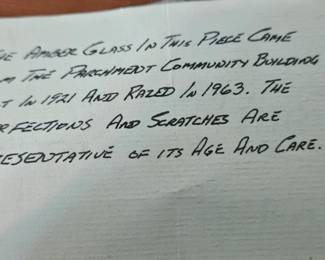 HE AMBER GLASS IN THIS PIECE CAME
OM THE PARCHMENT COMMUNITY BUILDING
T IN 1921 AND RAZED IN 1963. THE
RFECTIONS AND SCRATCHES ARE
RESENTATIVE OF ITS AGE AND CARE.